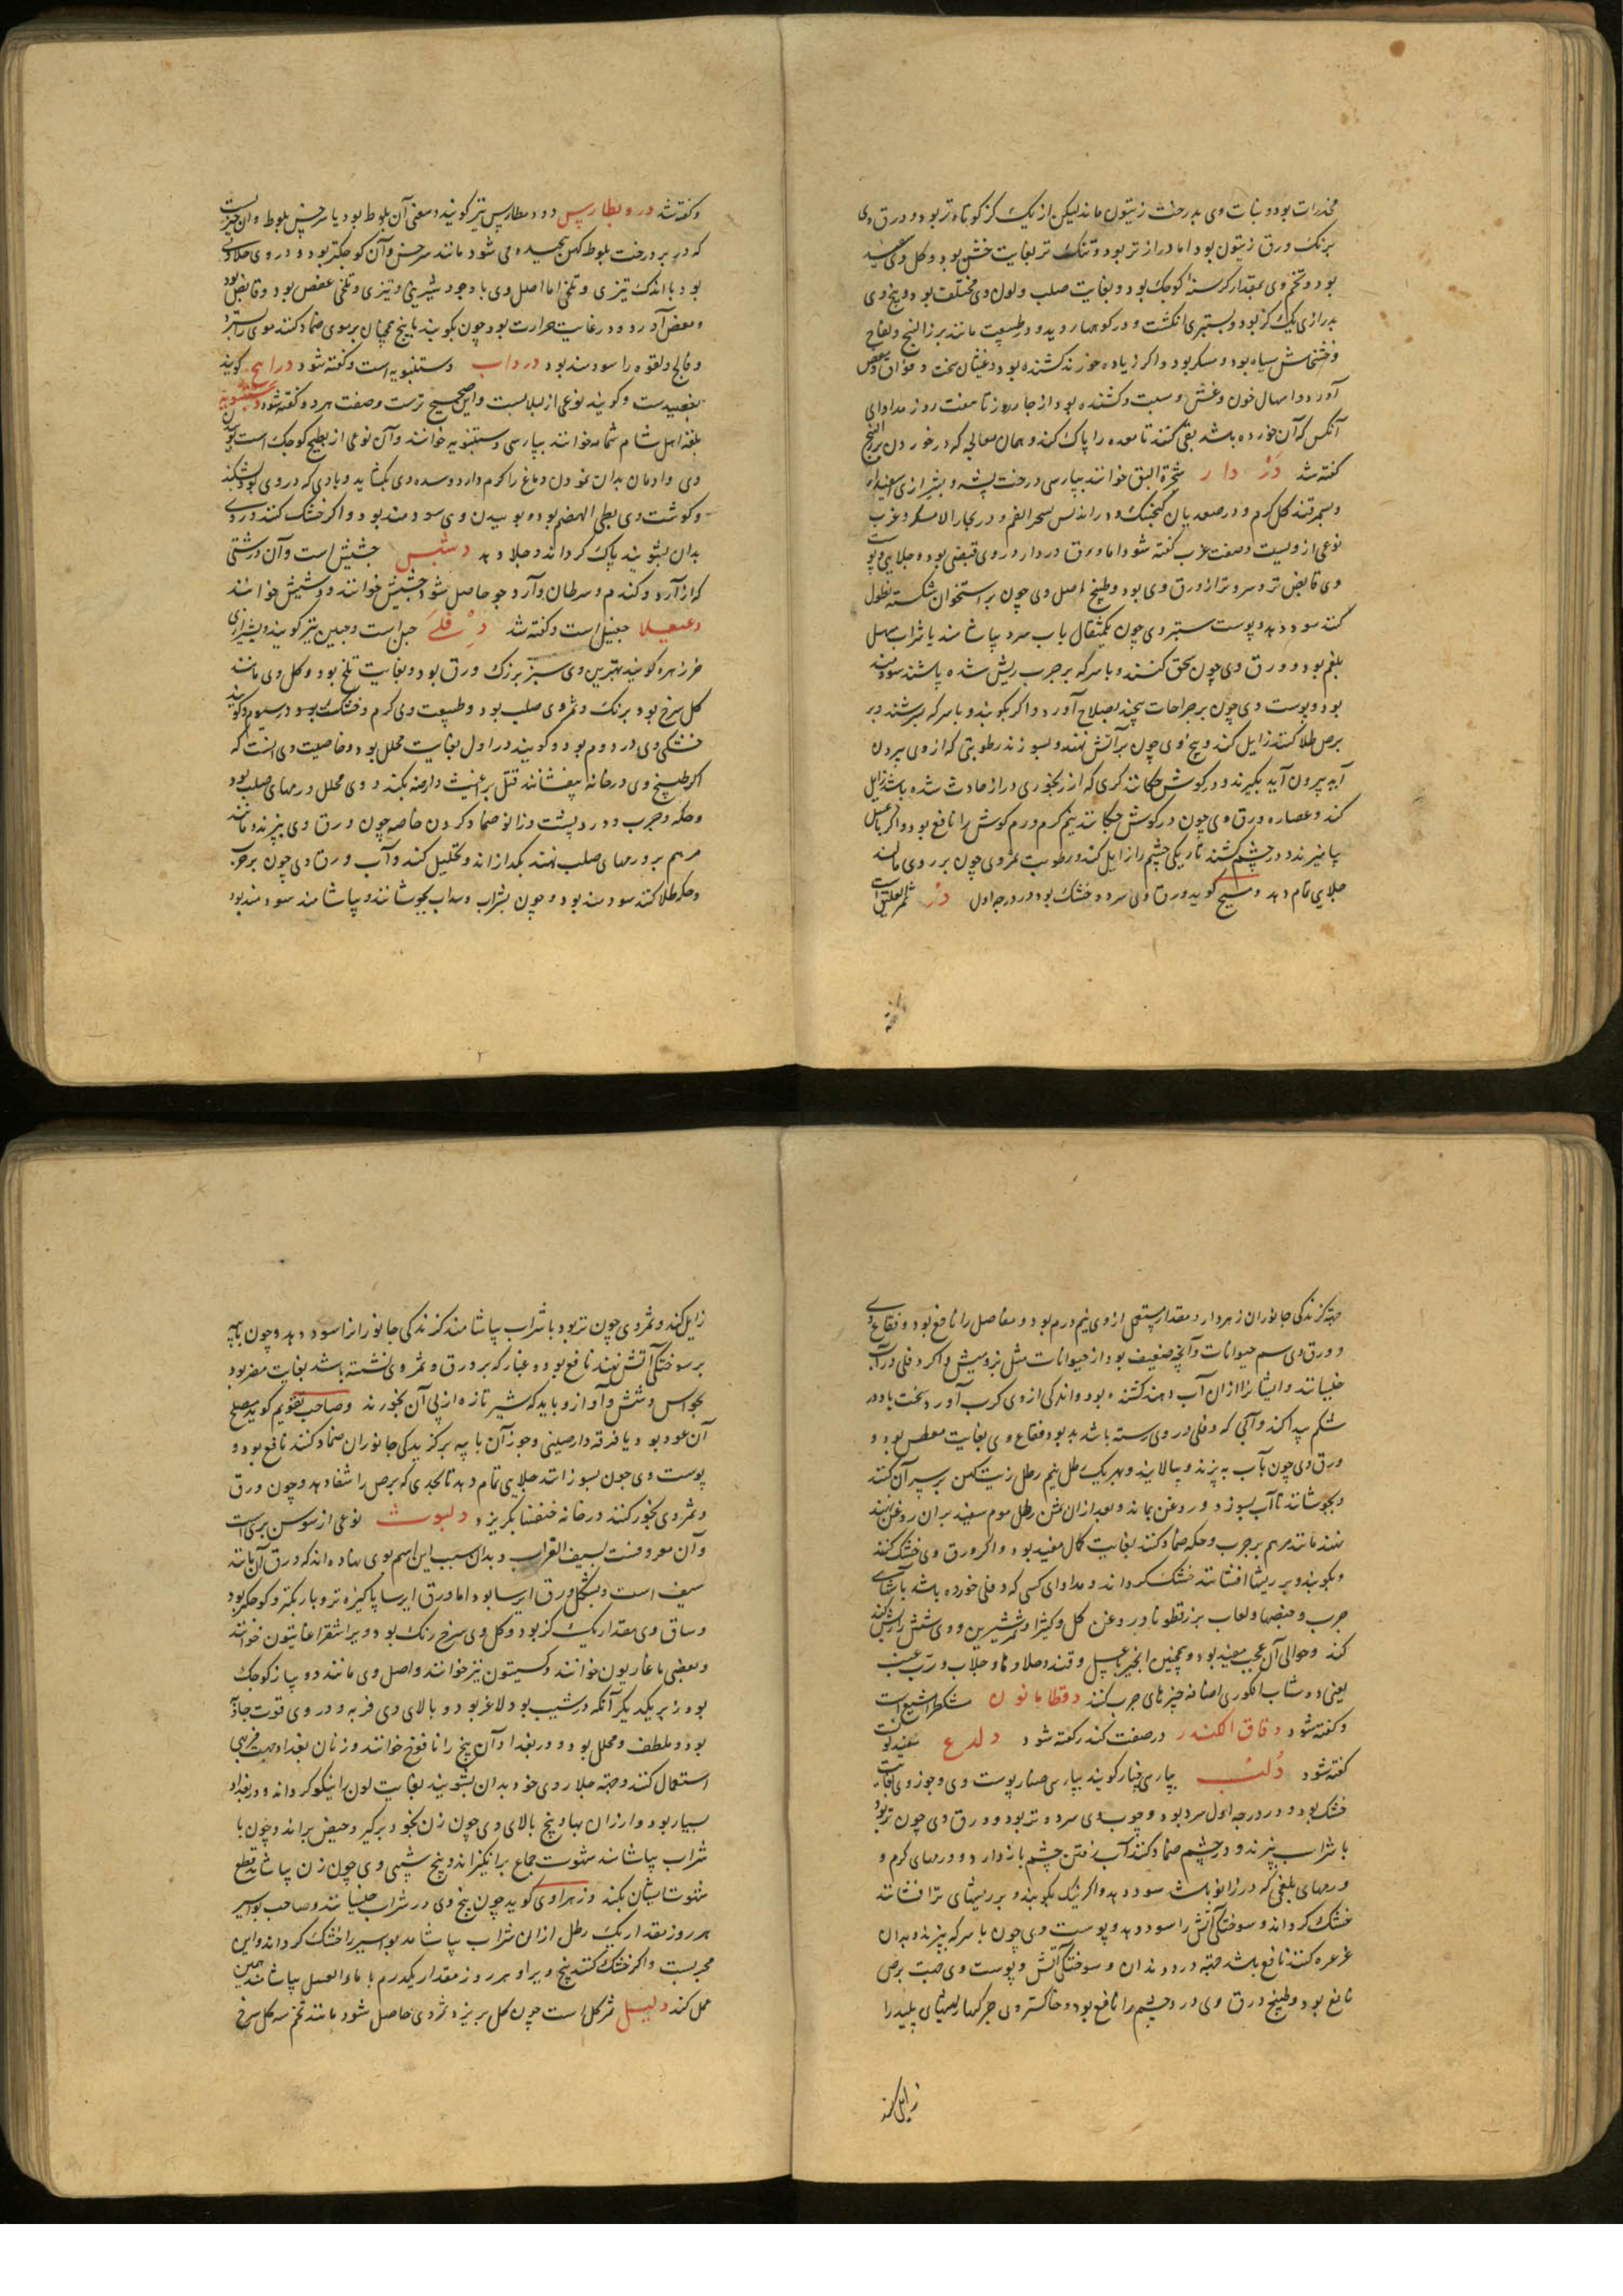 مخدرات بود و نبات وی بدرخت زیتون ماند لیکن از یک کز کوتاه تر بود و ورق وی
برنک ورق زیتون بود اما دراز تر بود و تنک تر بغایت خشن بود و کل وی سفید
بود و تخم وی بمقدار کرسنه کوجک بود و بغایت صلب و لون وی مختلف بود و بیخ وی
بدرازی یک کز بود و بستبری انکشت و در کوهها روید و در طبیعت مانند بزر البنج و لفاح
و خشخاش سیاه بود و مسکر بود و اکر زیاده خورند کشنده بود و غثیان سخت و فواق و مغص
آورد و اسهال خون و غشی و سبت و کشنده بود از جهار روز تا هفت روز مداوای
آنکس که آن خورده باشد بقی کنند تا معده را پاک کند و همان معالجه که در خوردن بزر البنج
کفته شد دردار شجرة البق خوانند بپارسی درخت پشه و بشیرازی اسفیدار
و بسمرقند کل کرم و در صعدیان کنجنک و در اندلس شجر الفم و در بخارا لامسکر و غرب
نوعی ازویست و صفت غرب کفته شود اما ورق دردار در وی قبضی بود و جلایی و پوست
وی قابض تر و سردتر از ورق وی بود و طبیخ اصل وی چون بر استخوان شکسته نطول
کنند سود دهد و پوست ستبر وی چون یکمثقال باب سرد بیاشامند یا شراب مسهل
بلغم بود و ورق وی چون سحق کنند و با سرکه بر جرب ریش شده پاشند سودمند
بود و پوست وی چون بر جراحات پیچند بصلاح آورد و اکر بکوبند و با سرکه بسرشند و بر
برص طلا کنند زایل کند و بیخ وی چون بر آتش نهند و بسوزند رطوبتی که از وی بیرون
آید بیرون آید بکیرند و در کوش چکانند کری که از رنجوری دراز حادث شده باشد زایل
کند و عصاره ورق وی چون در کوش چکانند نیم کرم ورم کوش را نافع بود و اکر با عسل
بیامیزند و در چشم کشند تاریکی چشم را زایل کند و رطوبت ثمر وی چون بر روی مالند
جلای تمام دهد و مسیح کوید ورق وی سرد و خشک بود در درجه اول در ثمر العلیق است
و کفته شد دروبطارس و دومطارس نیز کویند و معنی آن بلوط بود یا سرخس بلوط و ان چیزیست
که در بر درخت بلوط کهن پیچیده می شود مانند سرخس و آن کوجکتر بود و در وی حلاوتی
بود با اندک تیزی و تلخی اما اصل وی با وجود شیرینی و تیزی و تلخی عفص بود و قابض بود
و معض آورد و در غایت حرارت بود چون بکوبند با بیخ همچنان بر موی ضماد کنند موی را بسترد
و فالج و لقوه را سودمند بود درداب دستنبویه است و کفته شود درابج کویند
عصیدست و کویند نوعی از لبلابست و این صحیح ترست و صفت هر دو کفته شود دستنبویه
بلغة اهل شام شمام خوانند بپارسی دستنبویه خوانند و آن نوعی از بطیخ کوجک است بوی
وی و ادمان بدان نمودن دماغ را کرم دارد و سده وی بکشاید و بادی که در وی بود بشکند
و کوشت وی بطی الهضم بود و بوییدن وی سودمند بود و اکر خشک کنند و روی
بدان بشویند پاک کرداند و جلا دهد دشبس جشیش است و آن درشتی
که از آرد و کندم و سرطان و آرد جو حاصل شود جشیش خوانند و دشیش خوانند
دعبعلا جعبیل است و کفته شد دفلی حبل است و حبین نیز کویند و بشیرازی
خرزهره کویند بهترین وی سبز بزرک ورق بود و بغایت تلخ بود و کل وی مانند
کل سرخ بود برنک و ثمر وی صلب بود و طبیعت وی کرم و خشکست بود در سیوم و کویند
خشکی وی در دوم بود و کویند در اول بغایت محلل بود و خاصیت وی انست که
اکر طبیخ وی در خانه بیفشانند قتل براغیث و ارضه بکند و وی محلل ورمهای صلب بود
و حکه و جرب و درد پشت و زانو ضماد کردن خاصه چون ورق وی بپزند و مانند
مرهم بر ورمهای صلب نهند بکدازاند و تحلیل کند و آب ورق وی چون بر جرب
و حکه طلا کنند سودمند بود و چون بشراب و سداب بجوشانند و بیاشامند سودمند بود
جهة کزندکی جانوران زهردار و مقدار مستعمل از وی نیم درم بود و مفاصل را نافع بود و فقاع
و ورق وی سم حیوانات و آنچه ضعیف بود از حیوانات مثل بز و میش و اکر دفلی در آب
خیسانند و ایشانرا ازان آب دهند کشنده بود و اندکی از وی کرب آورد و سخت باد در
شکم پیدا کند و آبی که دفلی در وی رسته باشد بد بود و فقاع وی بغایت معطس بود و
ورق وی چون بآب بپزند و بپالایند و بهر یک رطل نیم رطل زیت کهن بر سر آن کنند
و بجوشانند تا آب بسوزد و روغن بماند و بعد ازان ثمن رطل موم سفید بران روغن نهند
نهند مانند مرهم بر جرب و حکه ضماد کنند بغایت کمال مفید بود و اکر ورق وی خشک کنند
و بکوبند و بر ریشها افشانند خشک کرداند و مداوای کسی که دفلی خورده باشد بآشهای
چرب و حیصها و لعاب بزر قطونا و روغن کل و کثیرا و شیر شیرین و وی شش را ریش کند
کند و حوالی آن عجب مفید بود و همچنین انجیر با عسل و قند و حلاوتها و جلاب و رب عنب
یعنی دوشاب انکوری اصلانه چیزهای چرب کنند دقطاماتون مشکطرامشیع است
و کفته شود دقاق الکندر در صفت کندر کفته شود دلدع سفیدی
کفته شود دلب بپارسی چنار کویند بپارسی صنار پوست وی و جوز وی بغایت
خشک بود و در درجه اول سرد بود و چوب وی سرد و تر بود و ورق وی چون تر بود
با شراب بپزند و در چشم ضماد کنند آب رفتن چشم باز دارد و ورمهای کرم و
ورمهای بلغمی که در زانو باشد سود دهد و اکر نیک بکوبند و بر ریشهای تر افشانند
خشک کرداند و سوختکی آتش را سود دهد و پوست وی چون با سرکه بپزند و بدان
غرغره کنند نافع باشد جهة درد دندان و سوختکی آتش و پوست وی جهت برص
نافع بود و طبیخ ورق وی درد چشم را نافع بود و خاکستر وی جرکها و ریشهای پلید را
زایل کند
زایل کند و ثمر وی چون تر بود با شراب بیاشامند کزندکی جانورانرا سود دهد و چون با پیه
بر سوختکی آتش نهند نافع بود و غبار که بر ورق و ثمر وی نشسته باشد بغایت مضر بود
بحواس و شش و آواز و باید که شیر تازه از پی آن بخورند و صاحب تقویم کوید مصلح
آن عود بود یا قرفه دارصینی و جوز آن با پیه بر کزیدکی جانوران ضماد کنند نافع بود و
پوست وی جون بسوزانند جلایی تمام دهد تا بحدی که برص را شفا دهد و چون ورق
و ثمر وی بخور کنند در خانه خنفسا بکریزد دلبوث نوعی از سوسن بری است
و آن معروفست بسیف الغراب و بدان سبب این اسم بوی نهاده اند که ورق آن مانند
سیف است و بشکل ورق ایرسا بود اما ورق ایرسا پاکیزه تر و باریکتر و کوجکتر بود
و ساق وی مقدار یک کز بود و کل وی سرخ رنک بود و ویرا سقراعانیتون خوانند
و بعضی ماعاریون خوانند و کسیتون نیز خوانند و اصل وی مانند دو پیاز کوجک
بود زبر یکدیکر آنکه در شیب بود لاغر بود و بالای وی فربه و در وی قوت جاذبه
بود و ملطف و محلل بود و در بغداد آن بیخ را نافوخ خوانند و زنان بغداد جهت فربهی
استعمال کنند و جهة جلا روی خود بدان بشویند بغایت لون را نیکو کرداند و در بغداد
بسیار بود و ارزان بها و بیخ بالای وی چون زن بخود برکیرد حیض براند و چون با
شراب بیاشامند شهوت جماع برانکیزاند و بیخ شیبی وی چون زن بیاشامد قطع
شهوت ایشان بکند و زهراوی کوید چون بیخ وی در شراب خیسانند و صاحب بواسیر
هر روز مقدار یک رطل ازان شراب بیاشامد بواسیر را خشک کرداند و این
مجربست و اکر خشک کنند بیخ ویرا و هر روز مقدار یکدرم با ماء العسل بیاشامند همین
عمل کند دلیل ثمر کل است چون کل بریزد ثمر وی حاصل شود مانند تخم سه کل سرخ